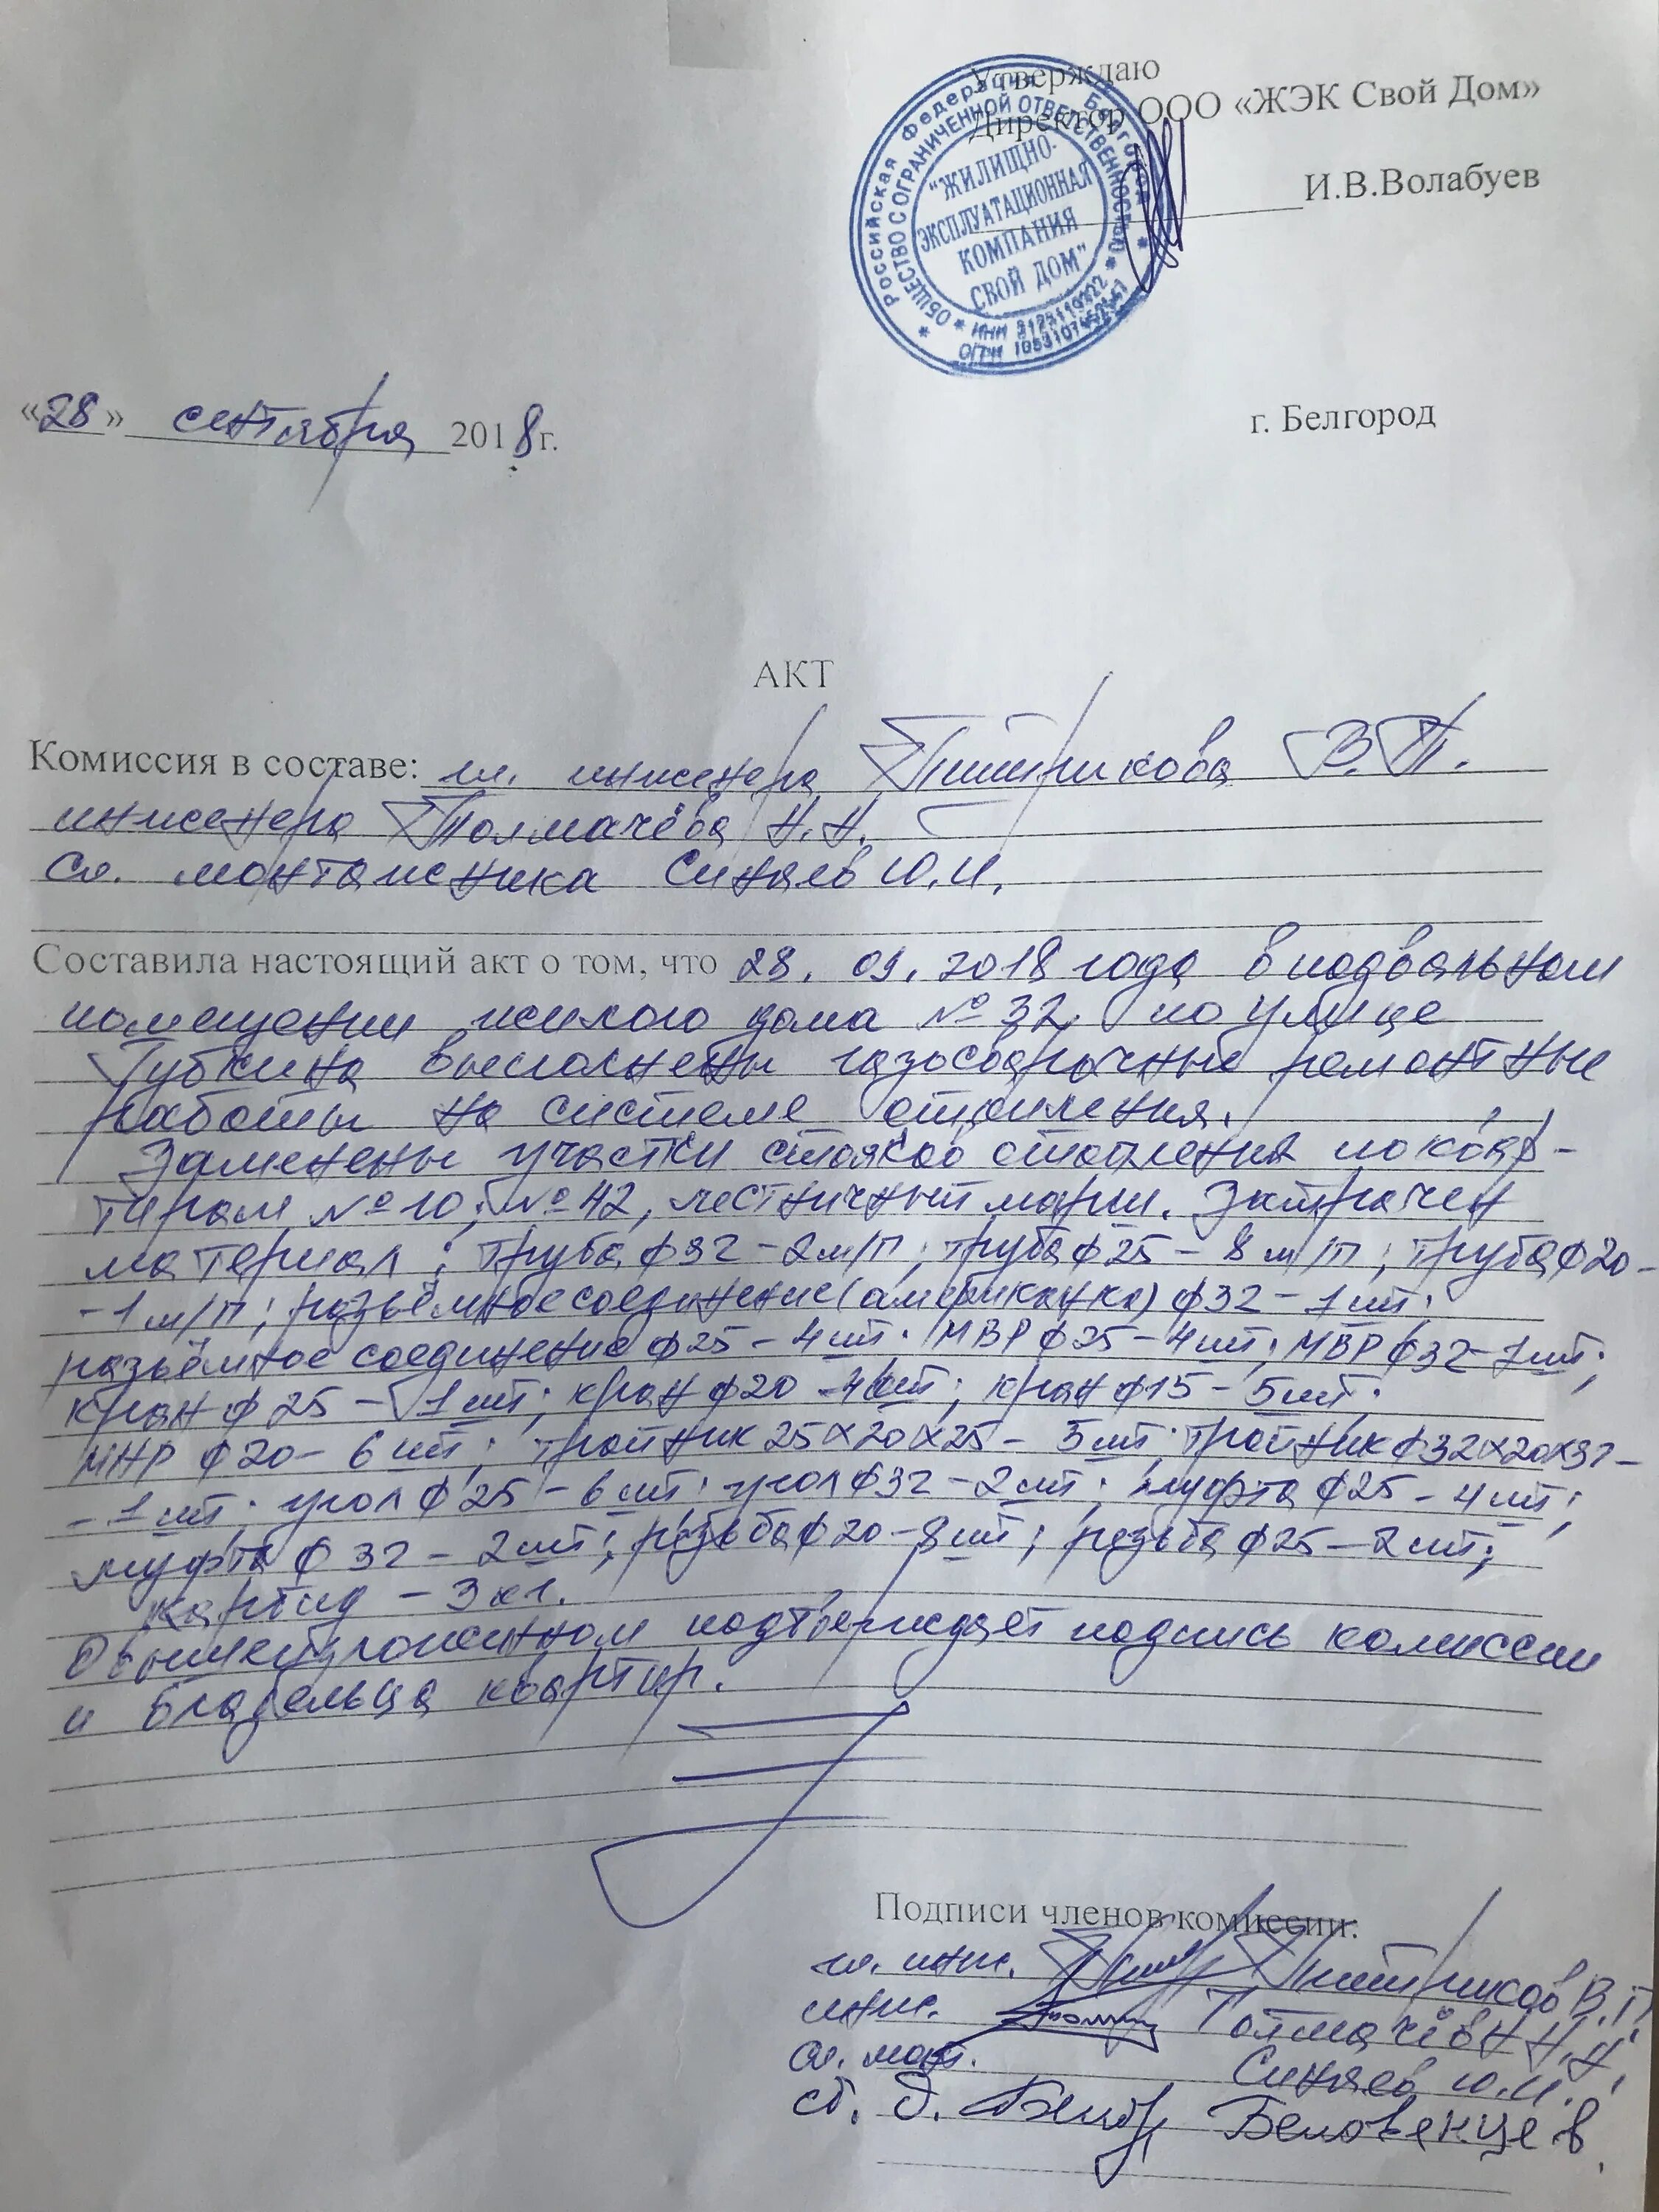 Утверждаю
Директор ООО «ЖЭК Свой Дом»
И.В.Волабуев
Российская Федерация
ОБЩЕСТВО С ОГРАНИЧЕННОЙ ОТВЕТСТВЕННОСТЬЮ
"ЖИЛИЩНО-
ЭКСПЛУАТАЦИОННАЯ
КОМПАНИЯ
СВОЙ ДОМ"
ИНН
ОГРН
«28» сентября 2018г.
г. Белгород
АКТ
Комиссия в составе: гл. инженера Питрикова В.П.
инженера Толмачёва Н.Н.
сл. монтажника Синяев Ю.И.
Составила настоящий акт о том, что 28.09.2018 года в подвальном
помещении жилого дома №32 по улице
Губкина выполнены газосварочные ремонтные
работы на системе отопления.
Заменены участки стояков отопления по квар-
тирам №10; №42, лестничный марш. Затрачен
материал: труба ф32-2м/п; труба ф25-8м/п; труба ф20-
-1м/п; разъёмное соединение (американка) ф32-1шт;
разъёмное соединение ф25-4шт; МВР ф25-4шт; МВР ф32-1шт;
кран ф25-1шт; кран ф20-4шт; кран ф15-5шт.
МНР ф20-6шт; тройник 25х20х25- шт; тройник ф32х20х32-
-1шт; угол ф25-6шт; угол ф32-2шт; муфта ф25-4шт;
муфта ф32-2шт; резьба ф20-8шт; резьба ф25-2шт;
карбид - 3кг.
О вышеизложенном подтверждает подпись комиссии
и владельца квартир.
Подписи членов комиссии:
гл. инж. Питриков В.П.
инж. Толмачёв Н.Н.
сл. монт. Синяев Ю.И.
ст. д. Беловенцев